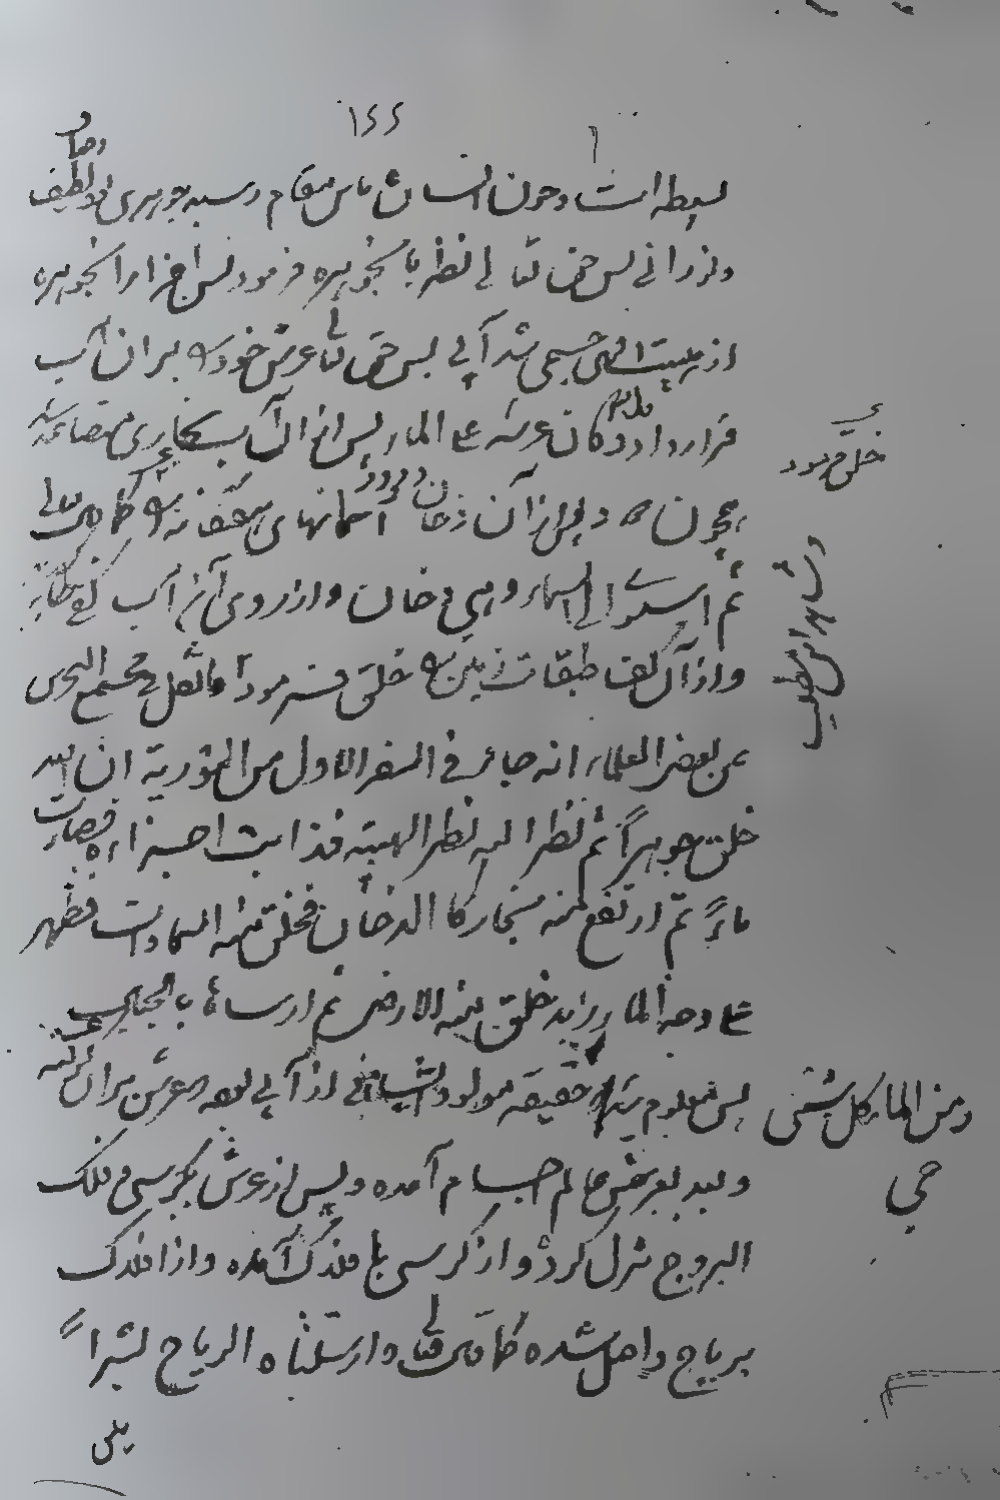 ١٤٤
بسیطه است و چون انسان باین مقام رسید جوهری بود لطیف
و نورانی پس حق تعالی نظر بآنجوهره فرمود پس اجزا را آنجوهره
از هیبت الهی جسمی شد آبی پس حق تعالی عرش خود را بر آن آب
قرار داد و کان عرشه علی الماء پس از آن آب بخاری متصاعد شد
همچون دود پس از آن دخان آسمانهای را کما قال تعالی
ثم استوی الی السماء و هی دخان و از روی آن آب کفی ظاهر
و از آن کف طبقات زمین را خلق فرمود کما نقل فی مجمع البحرین
عن بعض العلماء انه جاء فی السفر الاول من التوریة ان الله
خلق جوهراً ثم نظر الیه نظر الهیبة فذابت اجزاؤه فصارت
ماءً ثم ارتفع منه بخار کالدخان فخلق منه السموات فظهر
علی وجه الماء زبد فخلق منه الارض ثم ارساها بالجبال
پس معلوم شد حقیقه مولود انسانی از آبی بود که عرش بر آن
و بعد بعرش عالم اجسام آمده و پس از عرش بکرسی و فلک
البروج تنزل کرد و از کرسی بافلاک آمده و از افلاک
بریاح واصل شده کما قال تعالی و ارسلناه الریاح بشراً
خلق فرمود
و من الماء کل شیء
حی